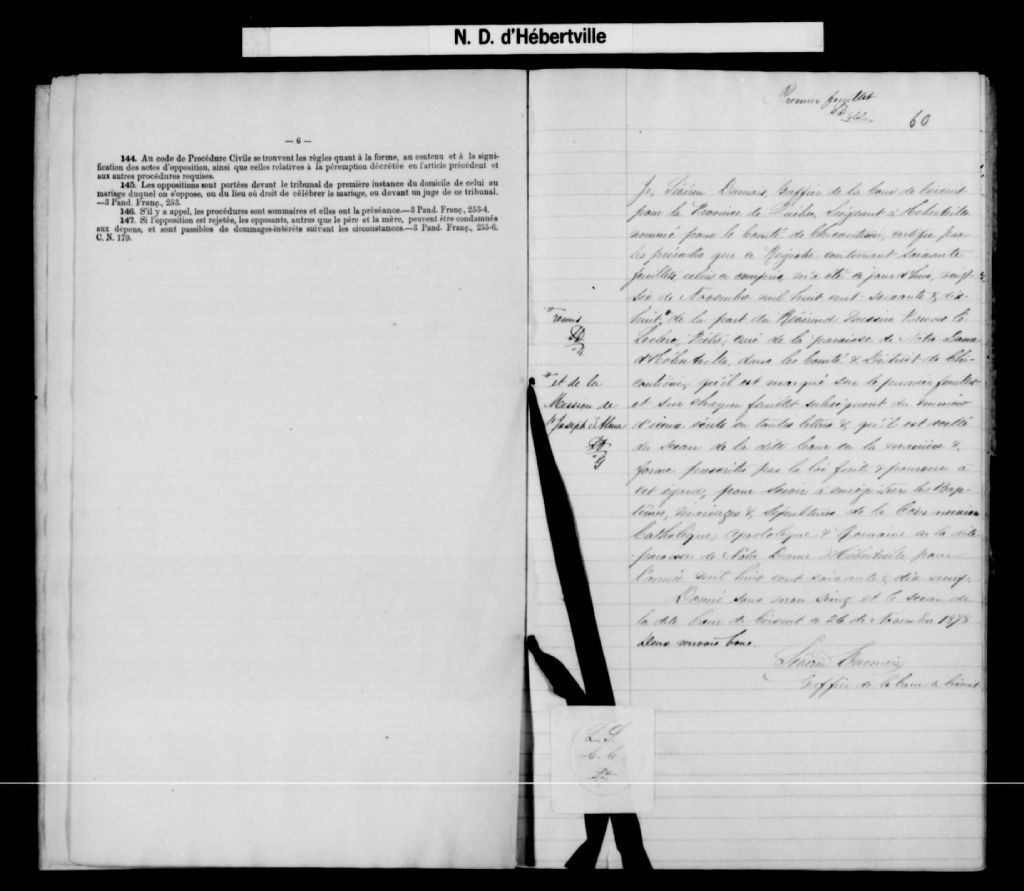 N. D. d'Hébertville
— 6 —
144. Au code de Procédure Civile se trouvent les règles quant à la forme, au contenu et à la signi-
fication des actes d'opposition, ainsi que celles relatives à la péremption décrétée en l'article précédent et
aux autres procédures requises.
145. Les oppositions sont portées devant le tribunal de première instance du domicile de celui au
mariage duquel on s'oppose, ou du lieu où droit de célébrer le mariage, ou devant un juge de ce tribunal.
—3 Pand. Franç., 253.
146. S'il y a appel, les procédures sont sommaires et elles ont la préséance.—3 Pand. Franç., 253-4.
147. Si l'opposition est rejetée, les opposants, autres que le père et la mère, peuvent être condamnés
aux dépens, et sont passibles de dommages-intérêts suivant les circonstances.—3 Pand. Franç., 255-6.
C. N. 179.
Premier feuillet
60
Je, Sévérin Dumais, Greffier de la Cour de Circuit
pour la Province de Québec, Siégeant à Hébertville
nommé pour le Comté de Chicoutimi, certifie par
les présentes que ce Registre, contenant soixante
feuillets, celui-ci compris, m'a été ce jourd'hui, vingt
six de Novembre mil huit cent soixante & dix
huit, de la part du Révérend Messire
Leclerc, Prêtre, curé de la paroisse de Notre Dame
d'Hébertville, dans les Comté & District de Chi-
coutimi, qu'il est marqué sur le premier feuillet
et sur chaque feuillet subséquent du numéro
d'iceux écrits en toutes lettres & qu'il est scellé
du sceau de la dite Cour en la manière &
forme prescrites par la loi faite & pourvue à
cet égard, pour servir à enregistrer les Bap-
têmes, mariages & sépultures de la
Catholique, apostolique & Romaine en la dite
paroisse de Notre Dame d'Hébertville pour
l'année mil huit cent soixante & dix neuf.
Donné sous mon seing et le sceau de
la dite Cour de Circuit ce 26 de Novembre 1878
Deux renvois bons.
Sévérin Dumais
Greffier de la Cour de Circuit
remis
et de la
Mission de
St Joseph d'Alma
L. S.
C. C.